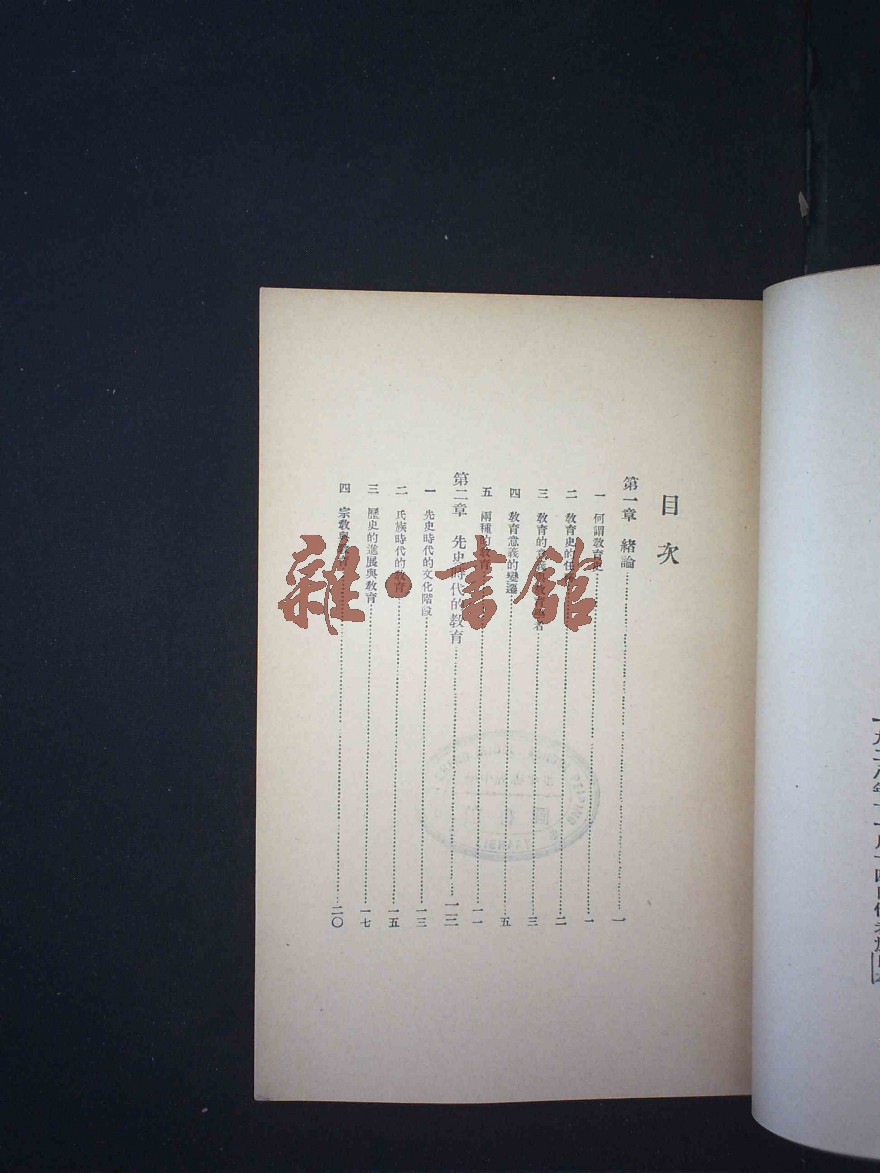 目次
第一章 緒論 一
一 何謂教育史 一
二 教育史的任 二
三 教育的意義 教育 者 三
四 教育意義的變遷 五
五 兩種的教育 一一
第二章 先史時代的教育 一三
一 先史時代的文化階段 一三
二 氏族時代的教育 一五
三 歷史的進展與教育 一七
四 宗教與教育 二〇
雜·書館